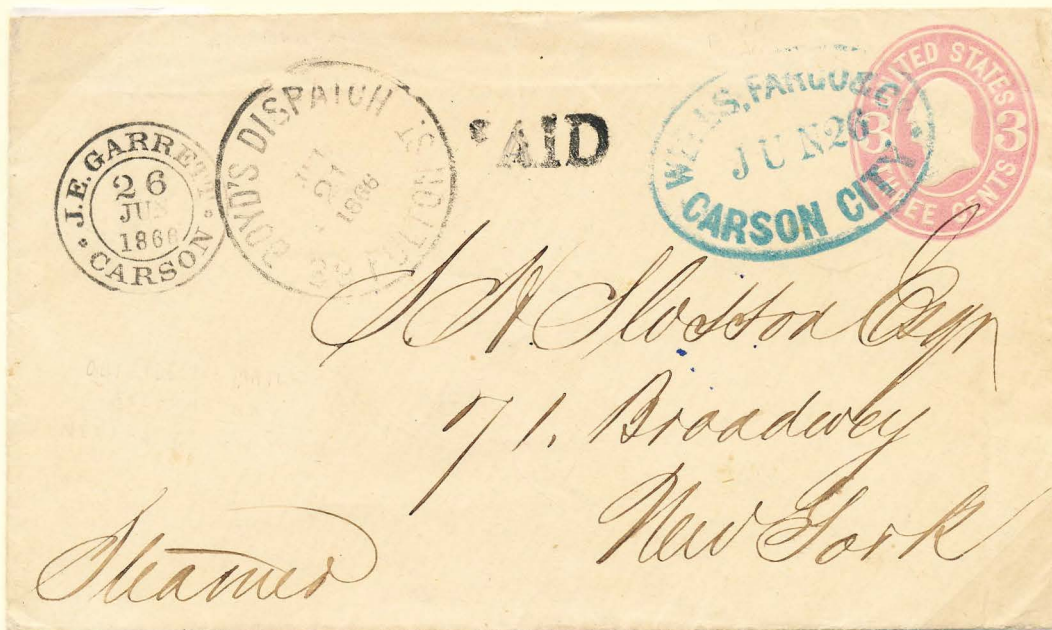 J.E. GARRETT
26
JUN
1866
CARSON
BOYD'S DISPATCH
JUL
21
1866
FULTON ST
AID
WELLS, FARGO & Co
JUN 26
CARSON CITY.
UNITED STATES
3 3
THREE CENTS
S H Slosson Esqr
71. Broadway
New York
Steamer